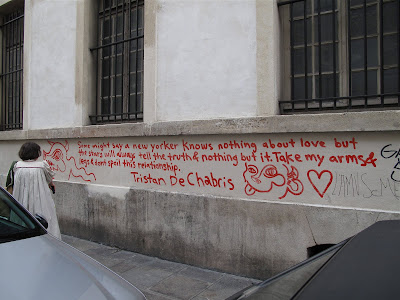 Some might say a new yorker knows nothing about love but
the stars will always tell the truth & nothing but it. Take my arms &
legs & dont spoil this relationship.
Tristan De Chabris